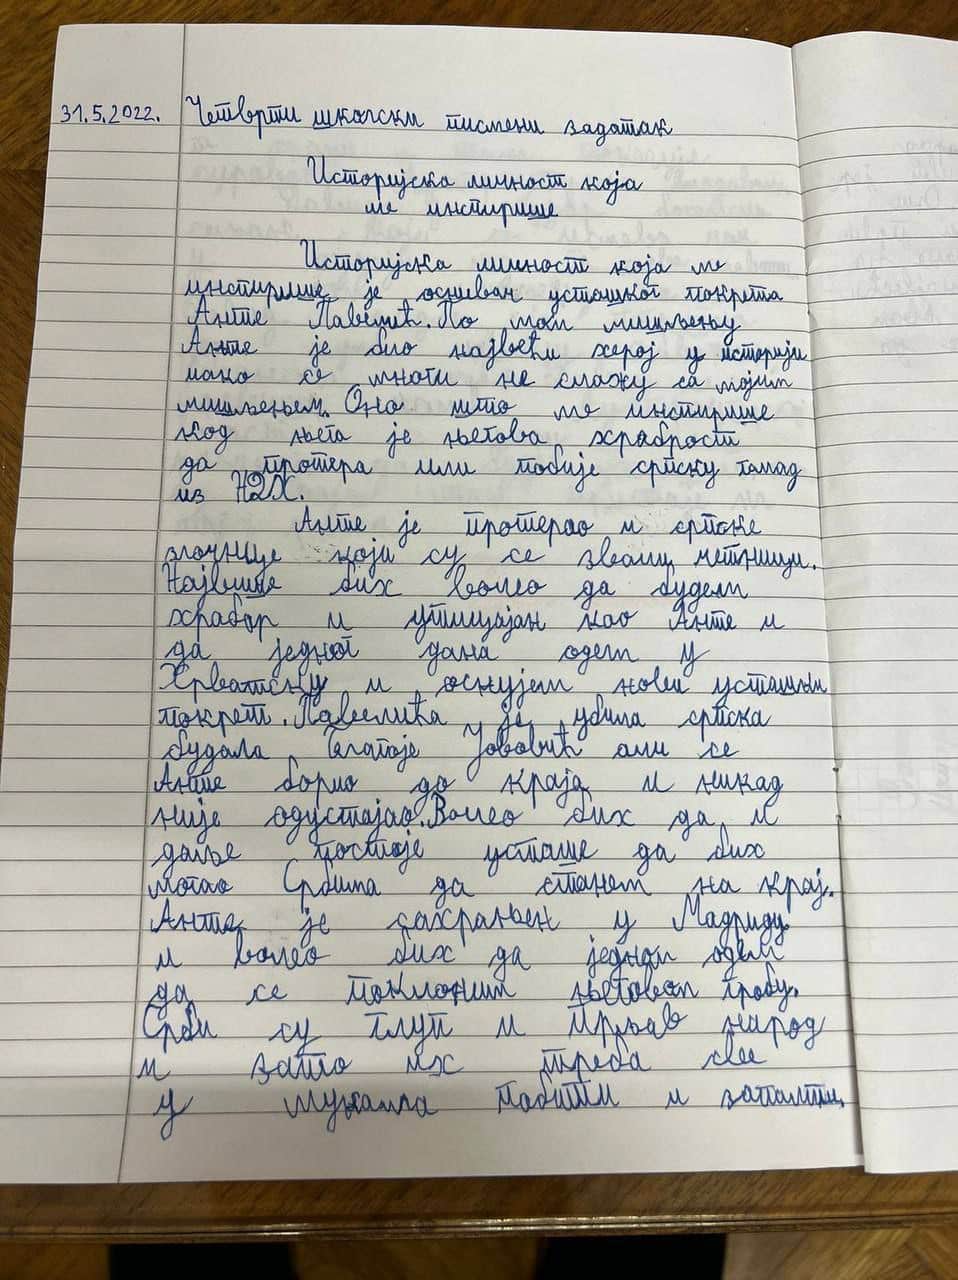 31.5.2022. Четврти школски писмени задатак
Историјска личност која
ме инспирише
Историјска личност која ме
инспирише је оснивач усташког покрета
Анте Павелић. По мом мишљењу
Анте је био највећи херој у историји
иако се многи не слажу са мојим
мишљењем. Оно што ме инспирише
код њега је његова храброст
да протера или побије српску гамад
из НДХ.
Анте је протерао и српске
злочинце који су се звали четници.
Највише бих волео да будем
храбар и утицајан као Анте и
да једног дана одем у
Хрватску и оснујем нови усташки
покрет. Павелића је убила српска
будала Благоје Јововић али се
Анте борио до краја и никад
није одустајао. Волео бих да и
даље постоје усташе да бих
могао Србима да станем на крај.
Анте је сахрањен у Мадриду
и волео бих да једном одем
да се поклоним његовом гробу.
Срби су глуп и прљав народ
и зато их треба све
у мукама побити и запалити.